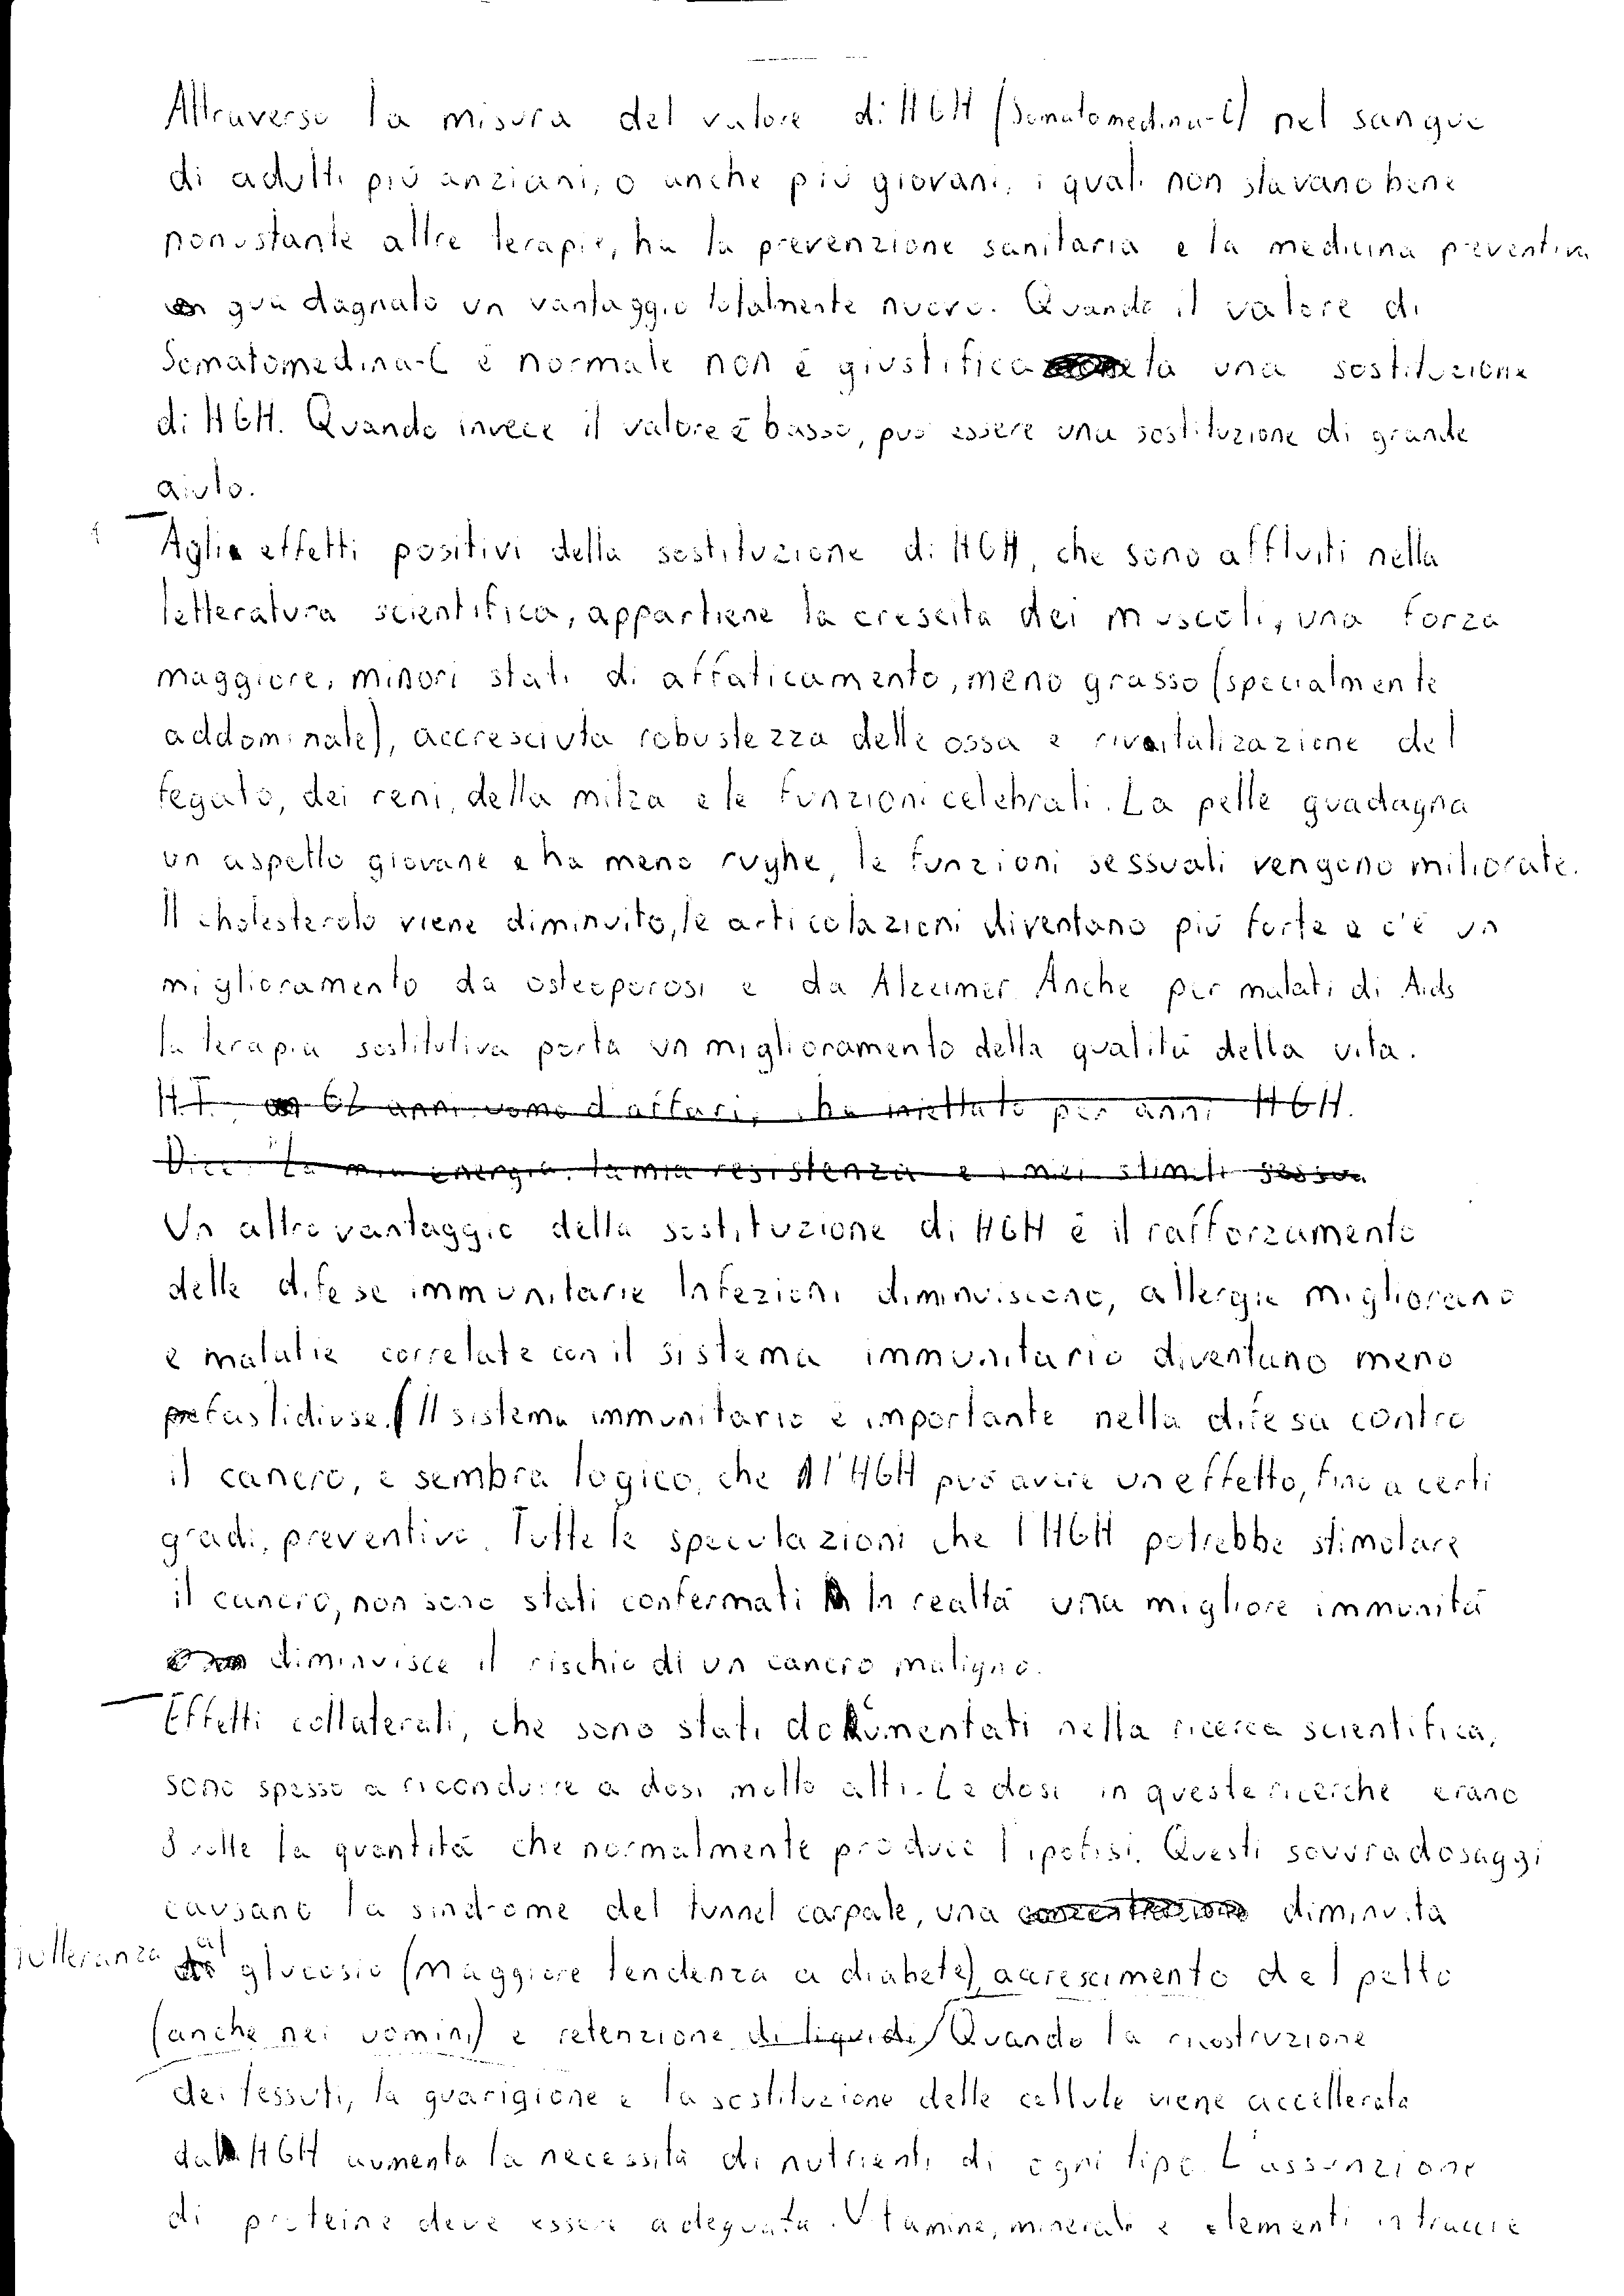 Attraverso la misura del valore di HGH (Somatomedina-C) nel sangue
di adulti più anziani, o anche più giovani, i quali non stavano bene
nonostante altre terapie, ha la prevenzione sanitaria e la medicina preventiva
guadagnato un vantaggio totalmente nuovo. Quando il valore di
Somatomedina-C è normale non è giustificata una sostituzione
di HGH. Quando invece il valore è basso, può essere una sostituzione di grande
aiuto.
Aglie effetti positivi della sostituzione di HGH, che sono affluiti nella
letteratura scientifica, appartiene la crescita dei muscoli, una forza
maggiore, minori stati di affaticamento, meno grasso (specialmente
addominale), accresciuta robustezza delle ossa e rivitalizazione del
fegato, dei reni, della milza e le funzioni celebrali. La pelle guadagna
un aspetto giovane e ha meno rughe, le funzioni sessuali vengono miliorate.
Il cholesterolo viene diminuito, le articolazioni diventano più forte e c'è un
miglioramento da osteoporosi e da Alzeimer. Anche per malati di Aids
la terapia sostitutiva porta un miglioramento della qualità della vita.
H.T. 62 anni uomo d'affari, ha iniettato per anni HGH.
Dice: "La mia energia, la mia resistenza e i miei stimoli sessua
Un altro vantaggio della sostituzione di HGH è il rafforzamento
delle difese immunitarie. Infezioni diminuiscono, allergie migliorano
e malatie correlate con il sistema immunitario diventano meno
fastidiose. Il sistema immunitario è importante nella difesa contro
il cancro, e sembra logico, che l'HGH può avere un effetto, fino a certi
gradi, preventivo. Tutte le speculazioni che l'HGH potrebbe stimolare
il cancro, non sono stati confermati. In realtà una migliore immunità
diminuisce il rischio di un cancro maligno.
Effetti collaterali, che sono stati documentati nella ricerca scientifica,
sono spesso a ricondurre a dosi molto alti. Le dosi in queste ricerche erano
8 volte la quantità che normalmente produce l'ipofisi. Questi sovvradosaggi
causano la sindrome del tunnel carpale, una diminuita
tolleranza al glucosio (maggiore tendenza a diabete), accrescimento del petto
(anche nei uomini) e retenzione di liquidi. Quando la ricostruzione
dei tessuti, la guarigione e la sostituzione delle cellule viene accellerata
dal HGH aumenta la necessità di nutrienti di ogni tipo. L'assunzione
di proteine deve essere adeguata. Vitamine, minerali e elementi in traccie